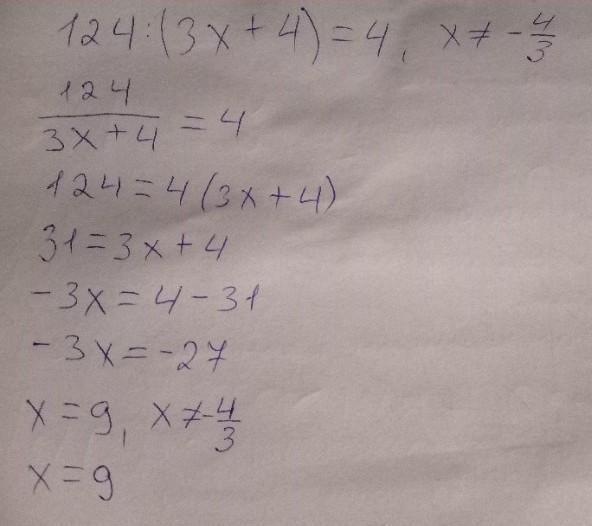 124:(3x+4)=4, x≠-4/3
124/3x+4=4
124=4(3x+4)
31=3x+4
-3x=4-31
-3x=-27
x=9, x≠-4/3
x=9